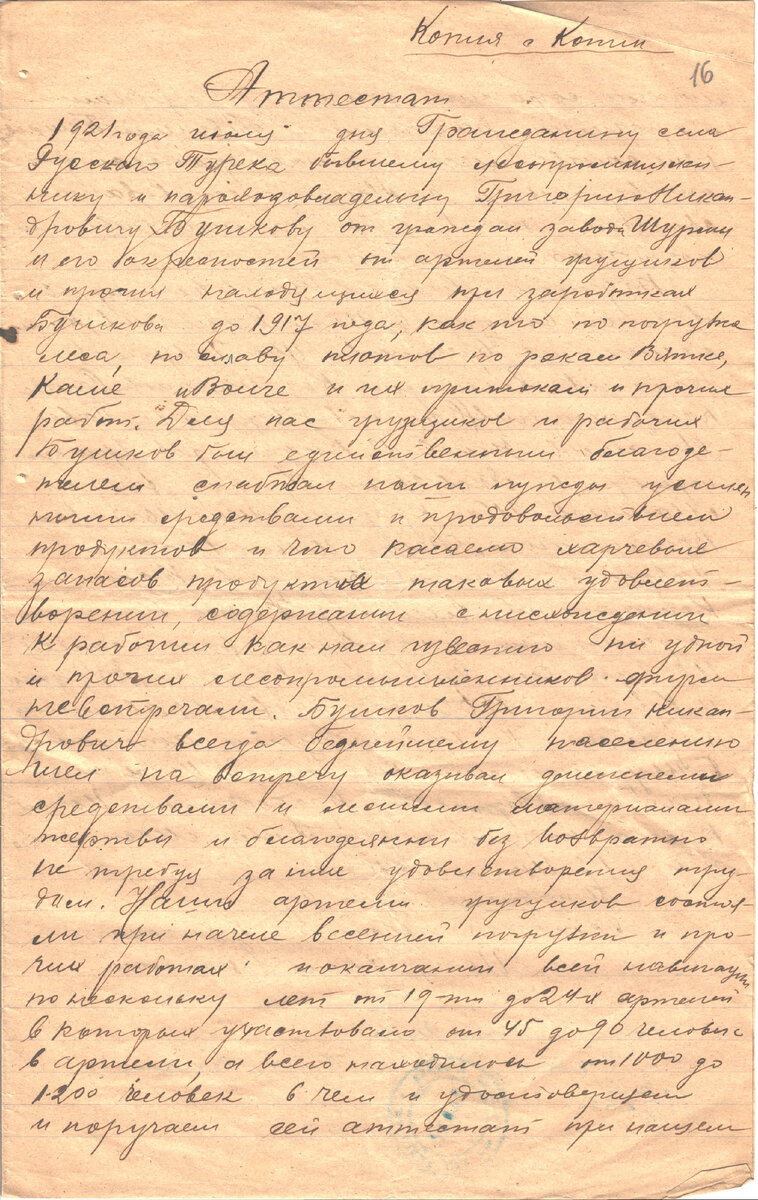 Копия с Копии
16
Аттестат
1921 года июля дня Гражданину села
Русского Турека бывшему лесопромышлен-
нику и пароходовладельцу Григорию Никан-
дровичу Бушкову от граждан завода Шурмы
и его окресностей от артелей грузчиков
и прочих находящихся при заработках
Бушкова до 1917 года, как то по погрузке
леса, по сплаву плотов по рекам Вятке,
Каме и Волге и их притокам и прочих
работ. Для нас грузчиков и рабочих
Бушков был единственным благоде-
телем снабжал наши нужды усилен
ными средствами и продовольствием
продуктов и что касаемо харчевые
запасов продуктах таковых удовлет-
ворении, содержании снисхождении
к рабочим как нам известно ни одной
и прочих лесопромышленников фирм
невстречали. Бушков Григорий Никан-
дрович всегда беднейшему населению
шел на встречу оказывал денежными
средствами и лесными материалами
жертвы и благодеянии без возвратно
не требуя за них удовлетворения тру-
дом. Наших артели грузчиков состоя-
ли при начале весенней погрузки и про-
чих работах и окончании всей навигации
по нескольку лет от 19-ти до 24х артелей
в которых участвовало от 45 до 90 человек
в артели, а всего находилось от 1000 до
1200 человек в чем и удостоверяем
и поручаем сей аттестат при нашем